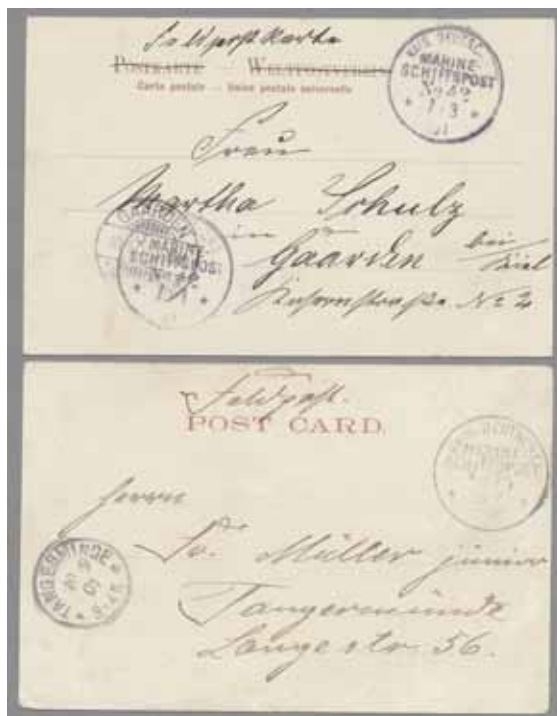 Feldpostkarte
POSTKARTE — WELTPOSTVEREIN
Carte postale — Union postale universelle
KAIS. DEUTSCHE
MARINE-
SCHIFFSPOST
No 42
7/3
Frau
Martha Schulz
in
Gaarden bei
Kiel
No 2
GAARDEN
MARINE-
SCHIFFSPOST
Feldpost.
POST CARD.
MARINE-
SCHIFFSPOST
Herrn
Fr. Müller junior
Tangermünde
Lange str. 56.
TANGERMÜNDE